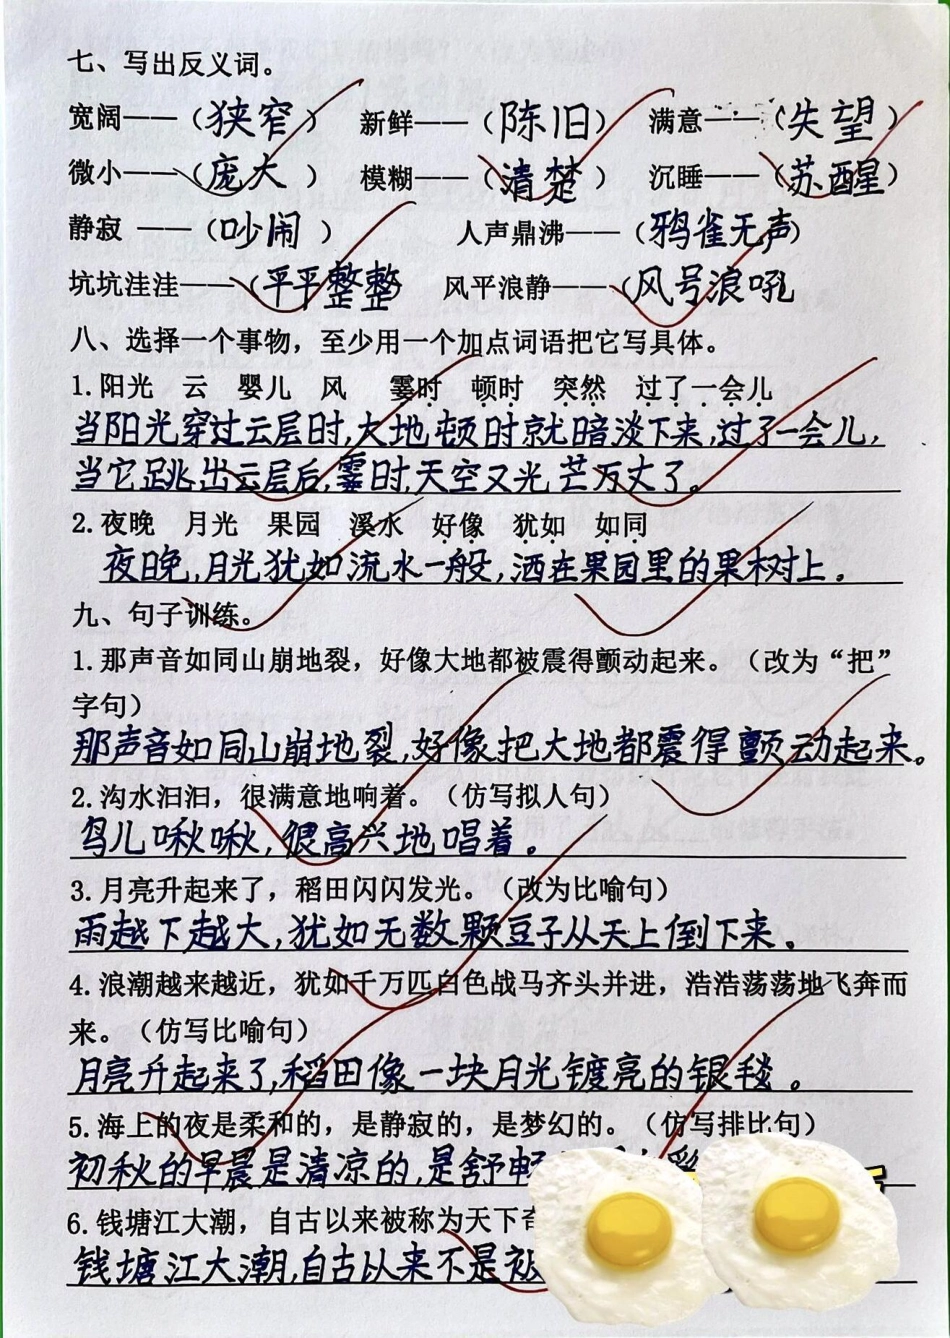 七、写出反义词。
宽阔——（狭窄） 新鲜——（陈旧） 满意——（失望）
微小——（庞大） 模糊——（清楚） 沉睡——（苏醒）
静寂 ——（吵闹） 人声鼎沸——（鸦雀无声）
坑坑洼洼——（平平整整 风平浪静——（风号浪吼
八、选择一个事物，至少用一个加点词语把它写具体。
1.阳光 云 婴儿 风 霎时 顿时 突然 过了一会儿
当阳光穿过云层时,大地顿时就暗淡下来,过了一会儿,
当它跳出云层后,霎时,天空又光芒万丈了。
2.夜晚 月光 果园 溪水 好像 犹如 如同
夜晚,月光犹如流水一般,洒在果园里的果树上。
九、句子训练。
1.那声音如同山崩地裂，好像大地都被震得颤动起来。（改为“把”
字句）
那声音如同山崩地裂,好像把大地都震得颤动起来。
2.沟水汩汩，很满意地响着。（仿写拟人句）
鸟儿啾啾,很高兴地唱着。
3.月亮升起来了，稻田闪闪发光。（改为比喻句）
雨越下越大,犹如无数颗豆子从天上倒下来。
4.浪潮越来越近，犹如千万匹白色战马齐头并进，浩浩荡荡地飞奔而
来。（仿写比喻句）
月亮升起来了,稻田像一块月光镀亮的银毯。
5.海上的夜是柔和的，是静寂的，是梦幻的。（仿写排比句）
初秋的早晨是清凉的,是舒畅
6.钱塘江大潮，自古以来被称为天下奇
钱塘江大潮,自古以来不是被